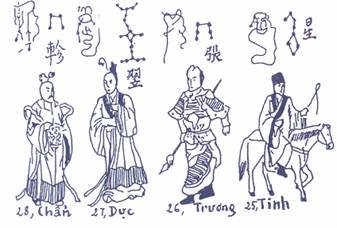 軫 張 星
28, Chẩn 27, Dực 26, Trương 25, Tinh